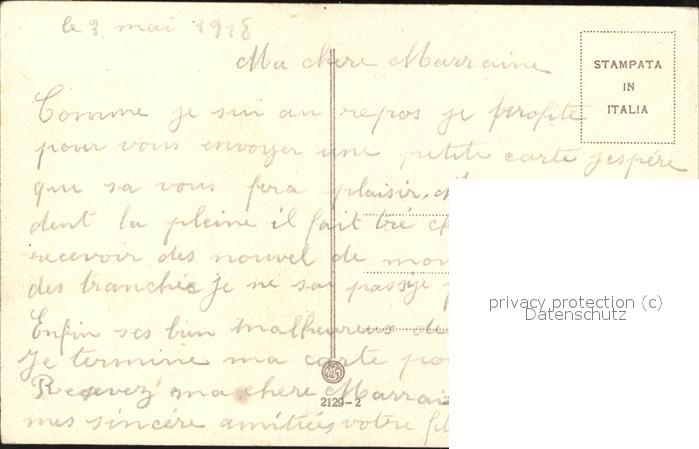 le 3 mai 1918
Ma chere Marraine
STAMPATA
IN
ITALIA
Comme je sui au repos je profite
pover vous envoyer une petite carte jespére
que sa vous fera plaisir.
dent la pleine il fait tré
recevoir des nouvel de mon
des tranchée je ne sai
Enfin ses bien malheureux de
Je termine ma carte
Resevez ma chere Marraine
mes sincére amitiés votre
2129-2
privacy protection (c)
Datenschutz